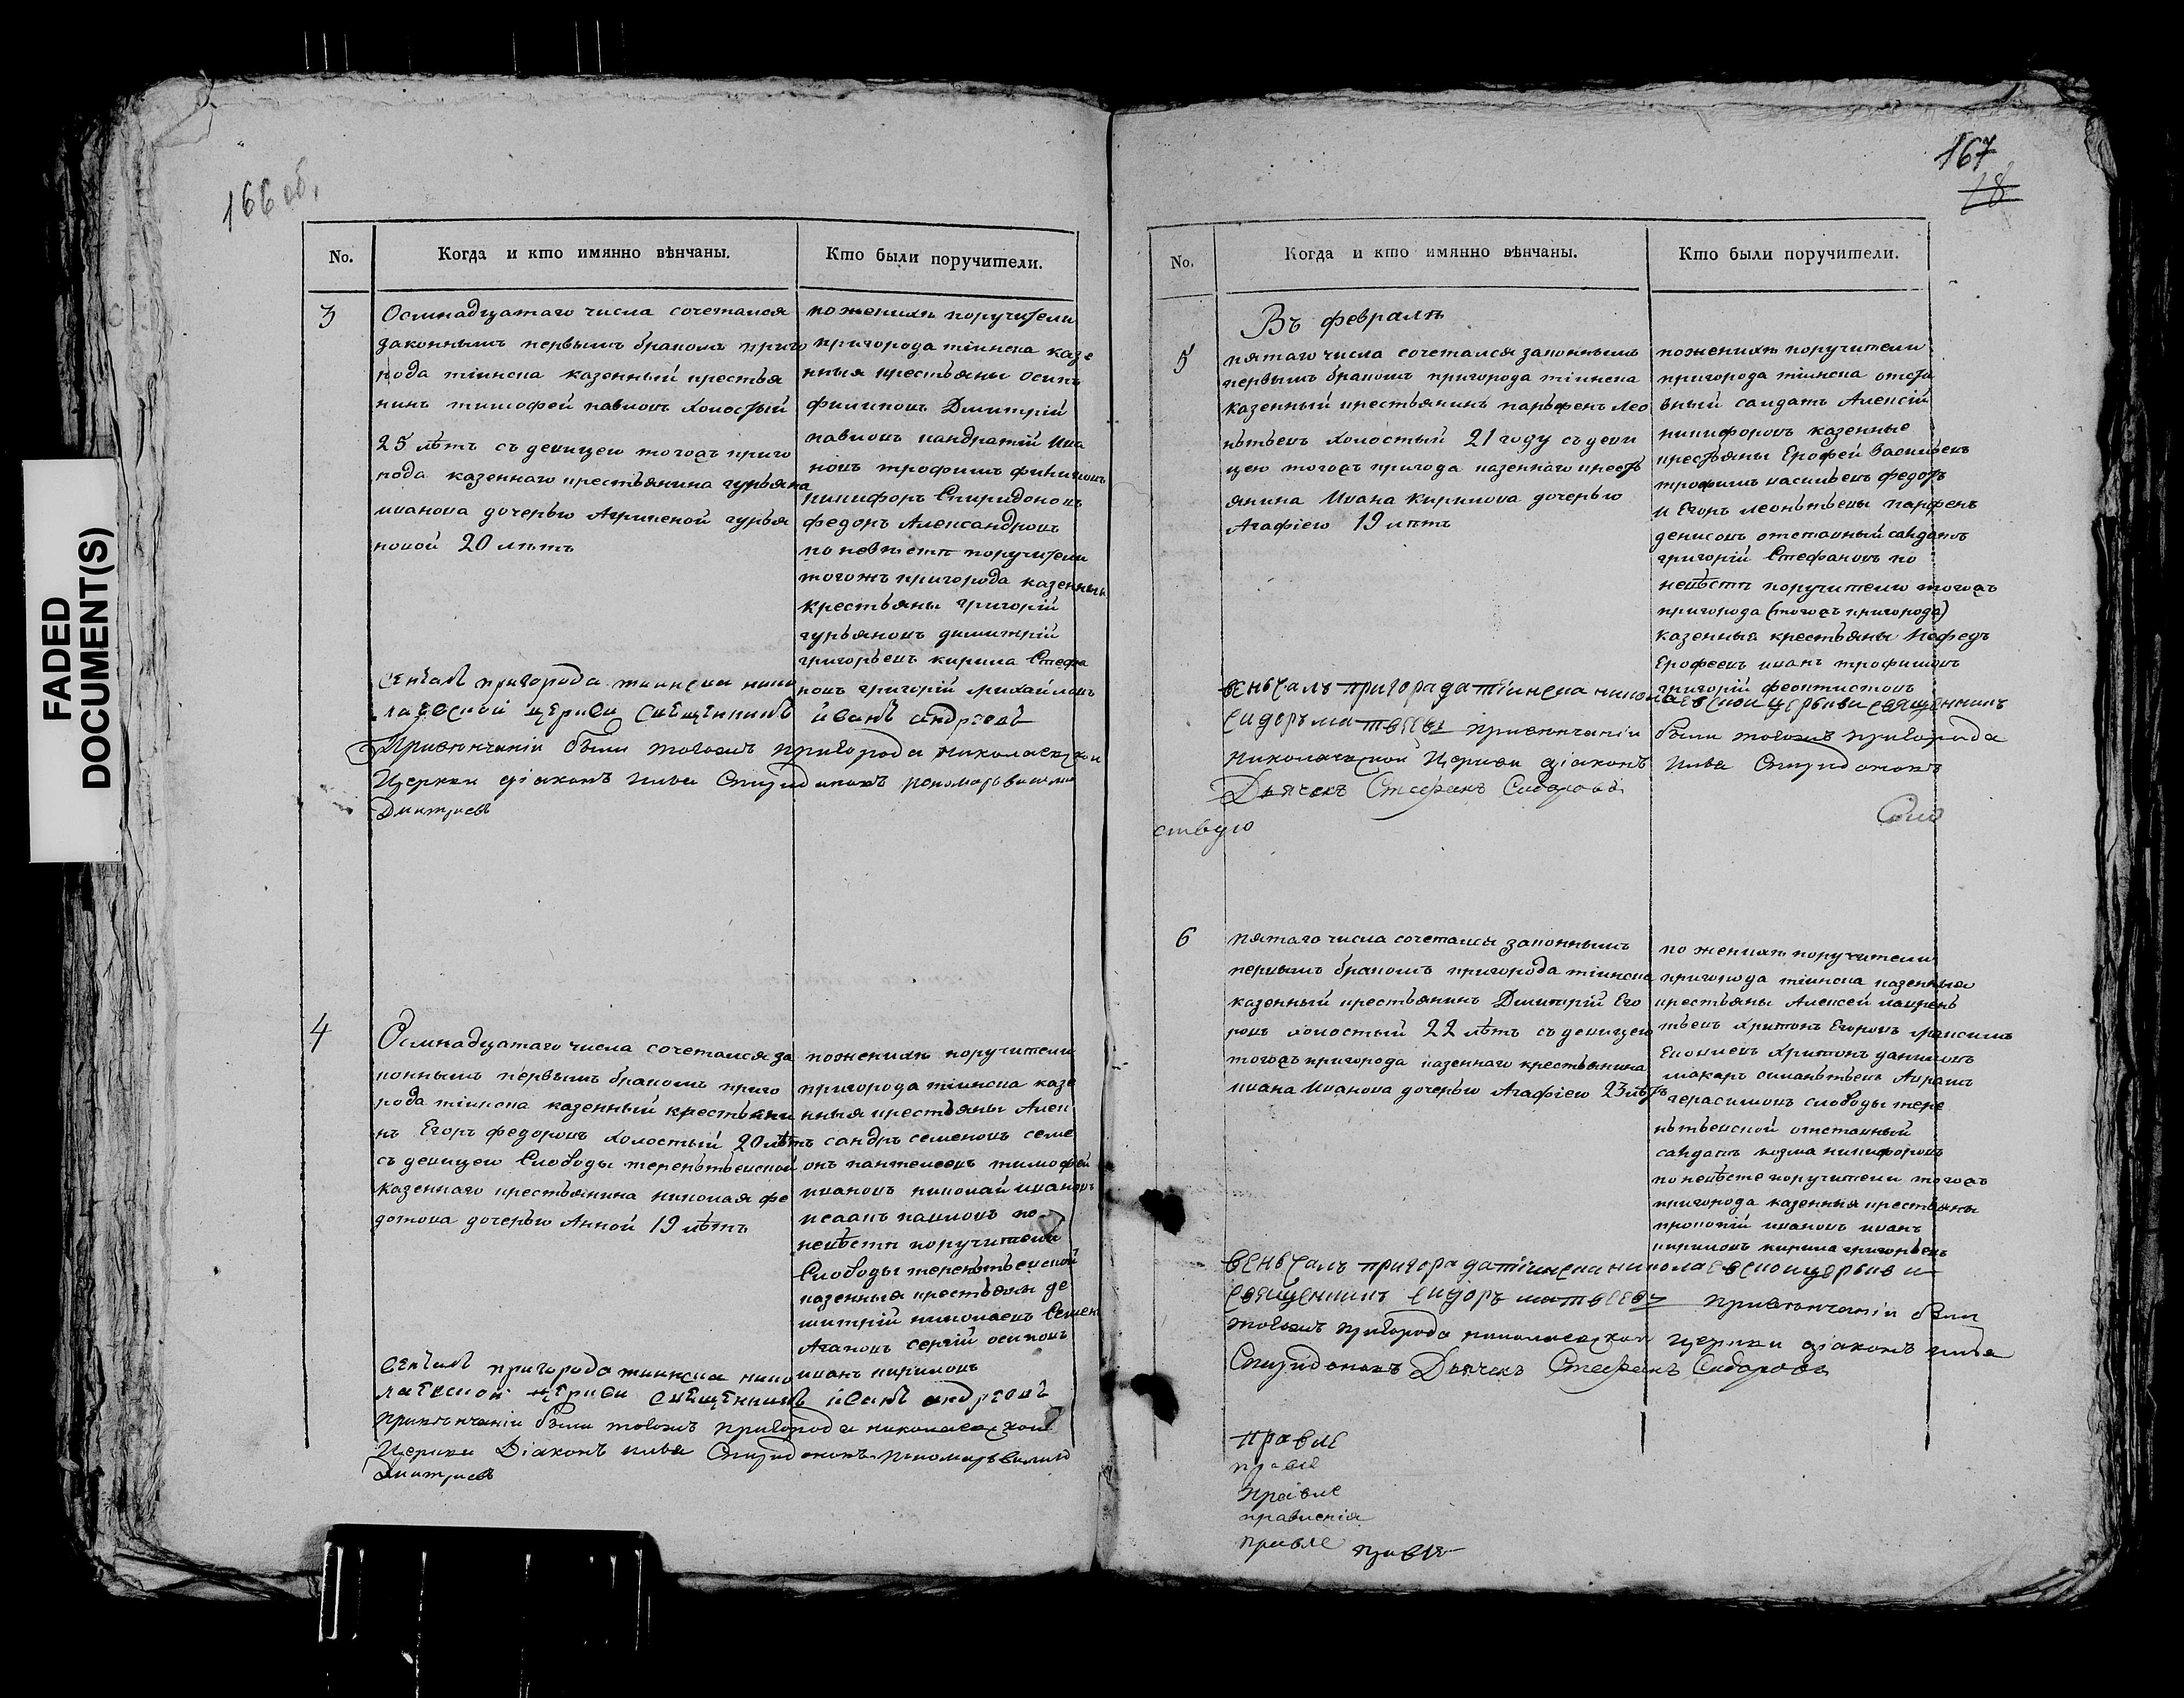 FADED
DOCUMENT(S)
166 об.
No.
Когда и кто имянно вѣнчаны.
Кто были поручители.
3
Осмнадцатаго числа сочетался
законнымъ первымъ бракомъ приго
рода тіинска казенный крестья
нинъ тимофей павловъ холостый
25 лѣтъ съ девицею тогожъ приго
рода казеннаго крестьянина гурьяна
иванова дочерью Агрипеной гурья
новой 20 лѣтъ
по женихѣ поручители
пригорода тіинска казе
нныя крестьяны осипъ
филиповъ Дмитрій
павловъ кандратій ива
новъ трофимъ филиповъ
никифоръ Спиридоновъ
федоръ Александровъ
по невѣстѣ поручители
тогожъ пригорода казенныя
крестьяны григорій
гурьяновъ димитрій
григорьевъ кирила Стефа
новъ григорій михайловъ
венчалъ пригорода тиинска нико
лаевской церкви священникъ иванъ андреевъ
При венчаніи были тогожъ пригорода николаевской
Церкви діаконъ илья Спиридоновъ пономарь василей
Дмитриевъ
4
Осмнадцатаго числа сочетался за
коннымъ первымъ бракомъ приго
рода тіинска казенный крестьяни
нъ Егоръ федоровъ холостый 20 лѣтъ
съ девицею Слободы терентьевской
казеннаго крестьянина николая фе
дотова дочерью Анной 19 лѣтъ
по женихѣ поручители
пригорода тіинска казе
нныя крестьяны Алек
сандръ семеновъ семе
онъ пантелеевъ тимофей
ивановъ николай ивановъ
исаакъ павловъ по
невѣстѣ поручители
Слободы терентьевской
казенныя крестьяны де
митрій николаевъ Семенъ
Агаповъ сергій осиповъ
иванъ кириловъ
венчалъ пригорода тиинска нико
лаевской церкви священникъ иванъ андреевъ
при венчаніи были тогожъ пригорода николаевской
Церкви Діаконъ илья Спиридоновъ пономарь василей
Дмитриевъ
167
18
No.
Когда и кто имянно вѣнчаны.
Кто были поручители.
Въ февралѣ
5
пятаго числа сочетался законнымъ
первымъ бракомъ пригорода тіинска
казенный крестьянинъ парьфенъ лео
нтьевъ холостый 21 году съ деви
цею тогожъ пригода казеннаго кресть
янина Ивана Кирилова дочерью
Агафіею 19 лѣтъ
по женихѣ поручители
пригорода тіинска отста
вный салдатъ Алексій
никифоровъ казенные
крестьяны Ерофей Васильевъ
трофимъ васильевъ федотъ
и Егоръ леонтьевы парфенъ
денисовъ отставный салдатъ
григорій Стефановъ по
невѣстѣ поручители тогожъ
пригорода (тогожъ пригорода)
казенныя крестьяны Нефедъ
Ерофеевъ иванъ трофимовъ
григорій феоктистовъ
веньчалъ пригорада тіинска николаевской церькви священникъ
сидоръ матвеевъ при венчаніи были тогожъ пригорода
Николаевской Церкви діаконъ илья Спиридоновъ
Дьячекъ Стефанъ Сидоровъ
ствую
6
пятаго числа сочетался законнымъ
первымъ бракомъ пригорода тіинска
казенный крестьянинъ Дмитрій Его
ровъ холостый 22 лѣтъ съ девицею
тогожъ пригорода казеннаго крестьянина
ивана Иванова дочерью Агафіею 23 лѣтъ
по женихѣ поручители
пригорода тіинска казенныя
крестьяны Алексей лаврень
тьевъ Харитонъ Егоровъ максимъ
Харитонъ даниловъ
макаръ Аврамъ
герасимовъ слободы тере
нтьевской отставный
салдатъ козма никифоровъ
по невѣсте поручители тогожъ
пригорода казенныя крестьяны
прокопій ивановъ иванъ
кириловъ кирила григорьевъ
веньчалъ пригорада тіинска николаевской церькви
священникъ сидоръ матвеевъ при венчаніи были
тогожъ пригорода николаевской церкви діаконъ илья
Спиридоновъ Дьячекъ Стефанъ Сидоровъ
правле
правле
правле
правленія
правле правле